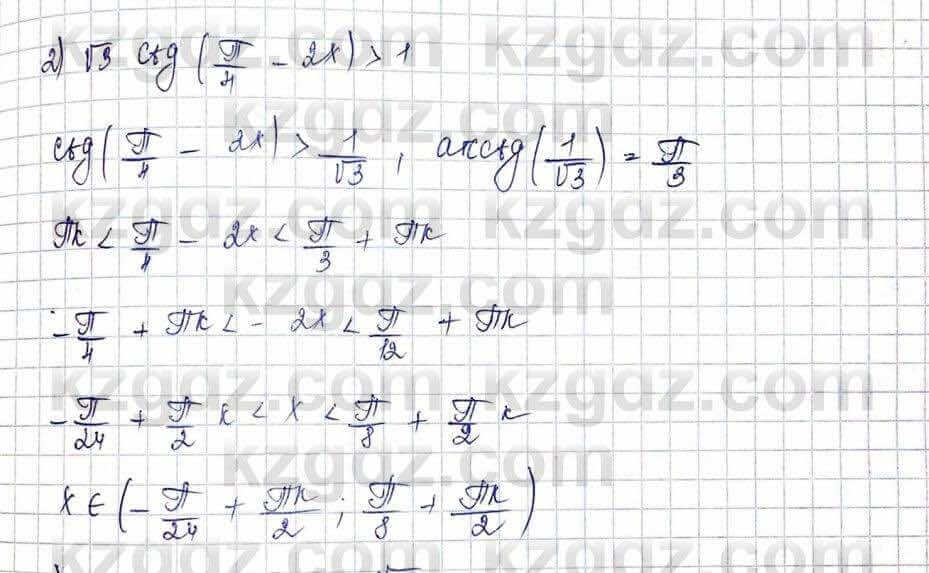 2) √3 ctg (π/4 - 2x) > 1
ctg(π/4 - 2x) > 1/√3 , arcctg(1/√3) = π/3
πk < π/4 - 2x < π/3 + πk
-π/4 + πk < - 2x < π/12 + πk
-π/24 + π/2 k < x < π/8 + π/2 k
x ∈ (-π/24 + πk/2 ; π/8 + πk/2)
kzgdz.com
kzgdz.com
kzgdz.com
kzgdz.com
kzgdz.com
kzgdz.com
kzgdz.com